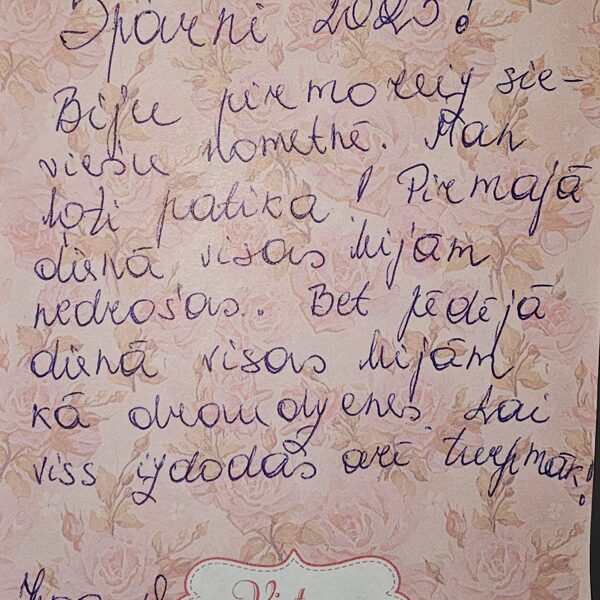 Spārni 2025!
Biju pirmoreiz sie-
viešu nometnē. Man
ļoti patika! Pirmajā
dienā visas bijām
nedrošas. Bet pēdējā
dienā visas bijām
kā draudzenes. Lai
viss izdodas arī turpmāk!